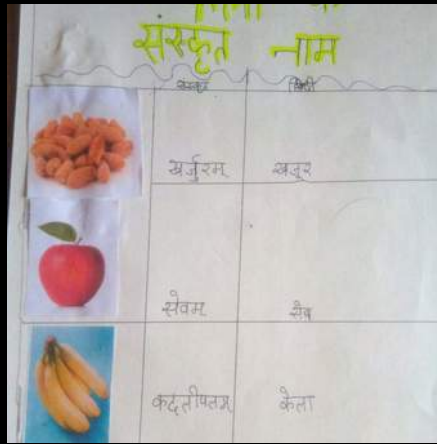 संस्कृत नाम
संस्कृत हिन्दी
खर्जुरम् खजूर
सेवम् सेब
कदलीफलम् केला